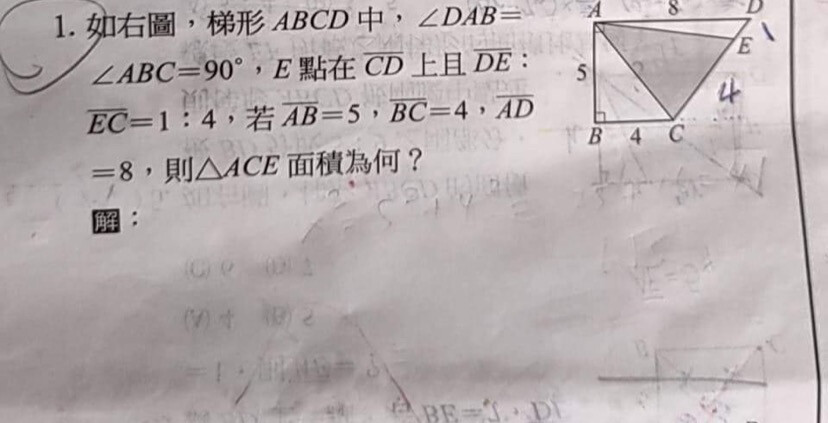 1. 如右圖，梯形 ABCD 中，∠DAB=
∠ABC=90°，E 點在 CD 上且 DE：
EC=1：4，若 AB=5，BC=4，AD
=8，則△ACE 面積為何？
解：
A 8 D
E 1
5
4
B 4 C